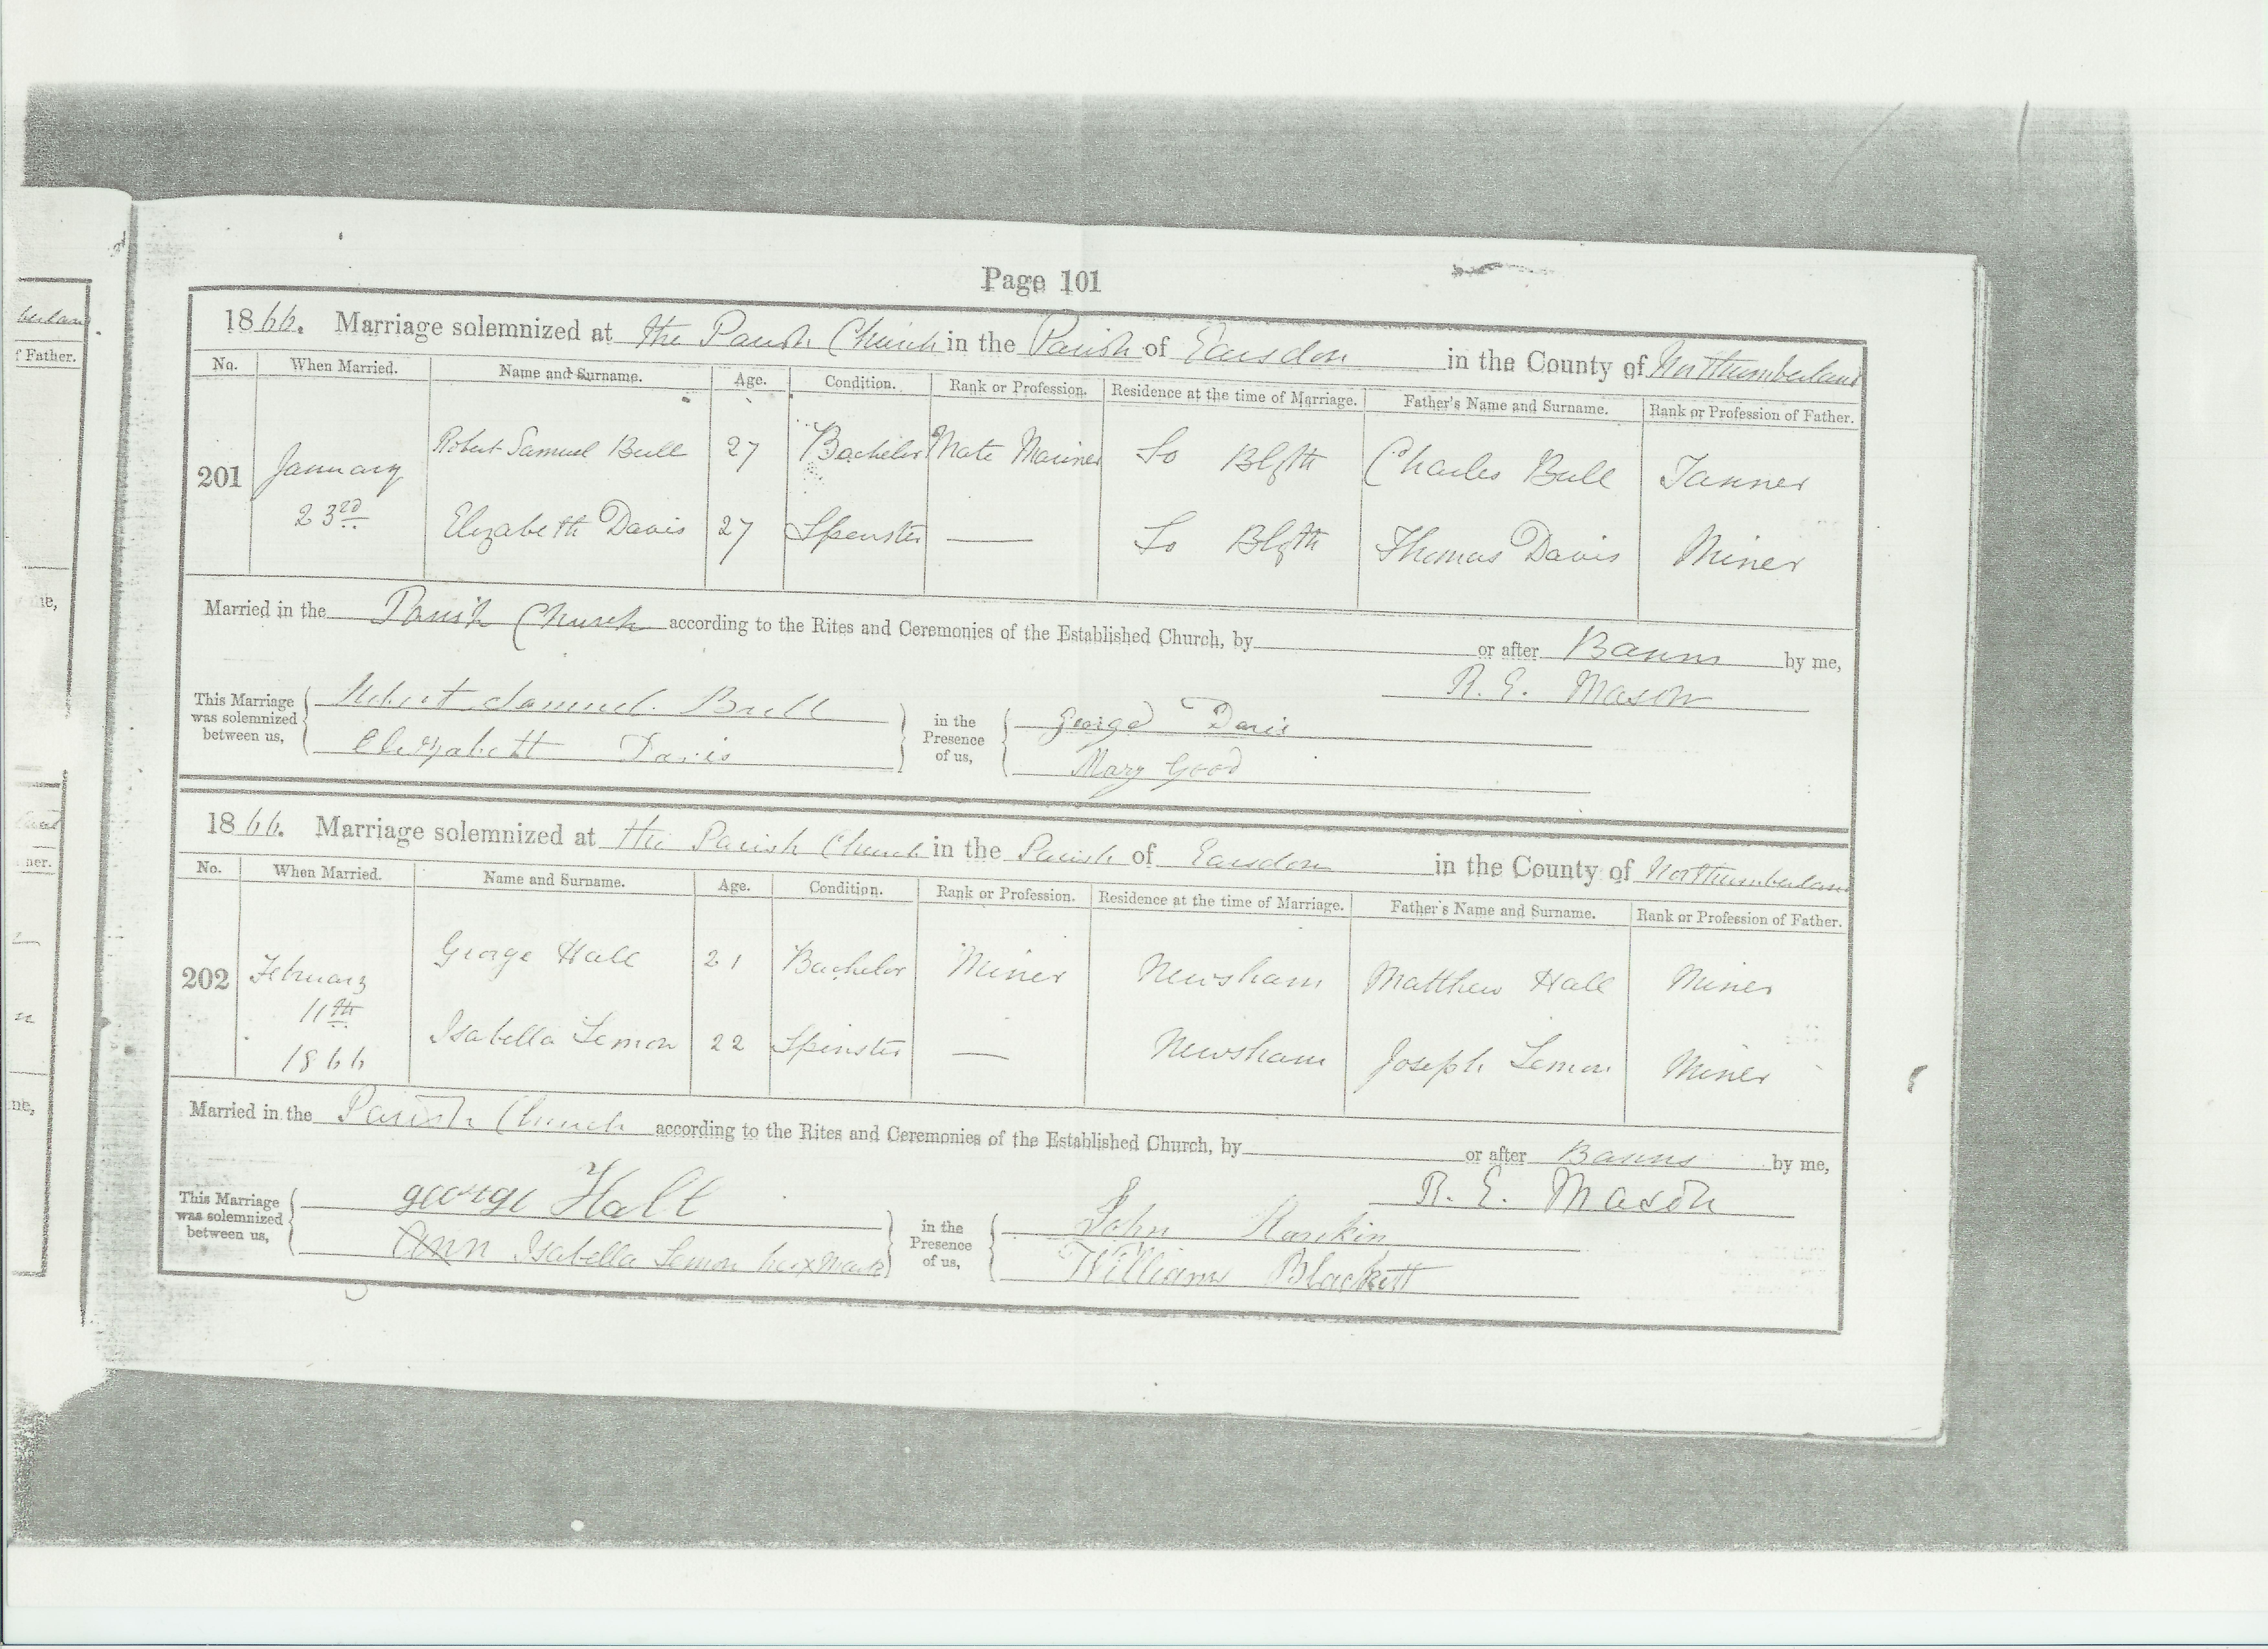 Page 101
1866. Marriage solemnized at the Parish Church in the Parish of Earsdon in the County of Northumberland
No. When Married. Name and Surname. Age. Condition. Rank or Profession. Residence at the time of Marriage. Father's Name and Surname. Rank or Profession of Father.
201 January 23rd Robert Samuel Bull 27 Bachelor Mate Mariner So Blyth Charles Bull Tanner
Elizabeth Davis 27 Spinster — So Blyth Thomas Davis Miner
Married in the Parish Church according to the Rites and Ceremonies of the Established Church, by or after Banns by me,
R. E. Mason
This Marriage was solemnized between us, Robert Samuel Bull in the Presence of us, George Davis
Elizabeth Davis Mary Good
1866. Marriage solemnized at the Parish Church in the Parish of Earsdon in the County of Northumberland
No. When Married. Name and Surname. Age. Condition. Rank or Profession. Residence at the time of Marriage. Father's Name and Surname. Rank or Profession of Father.
202 February 11th 1866 George Hall 21 Bachelor Miner Newsham Matthew Hall Miner
Isabella Lemon 22 Spinster — Newsham Joseph Lemon Miner
Married in the Parish Church according to the Rites and Ceremonies of the Established Church, by or after Banns by me,
R. E. Mason
This Marriage was solemnized between us, george Hall in the Presence of us, John Rankin
Ann Isabella Lemon her x mark William Blackett
berland
f Father.
ne,
ner.
ne,